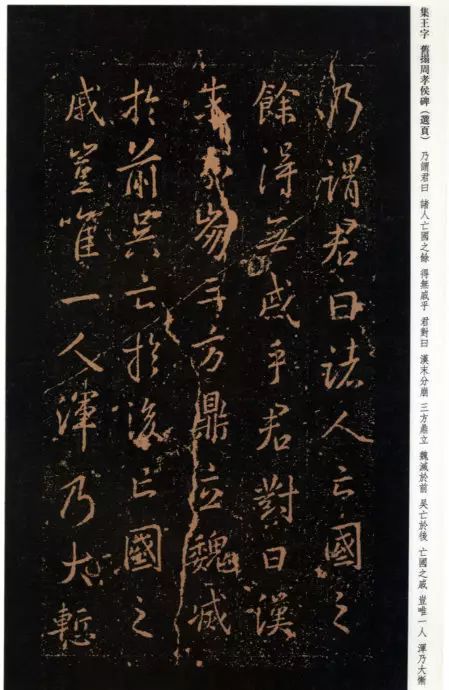 集王字 舊搨周孝侯碑（選頁） 乃謂君曰 諸人亡國之餘 得無戚乎 君對曰 漢末分崩 三方鼎立 魏滅於前 吳亡於後 亡國之戚 豈唯一人 渾乃大慚
乃謂君曰諸人亡國之
餘得無戚乎君對曰漢
末分崩三方鼎立魏滅
於前吳亡於後亡國之
戚豈唯一人渾乃大慚